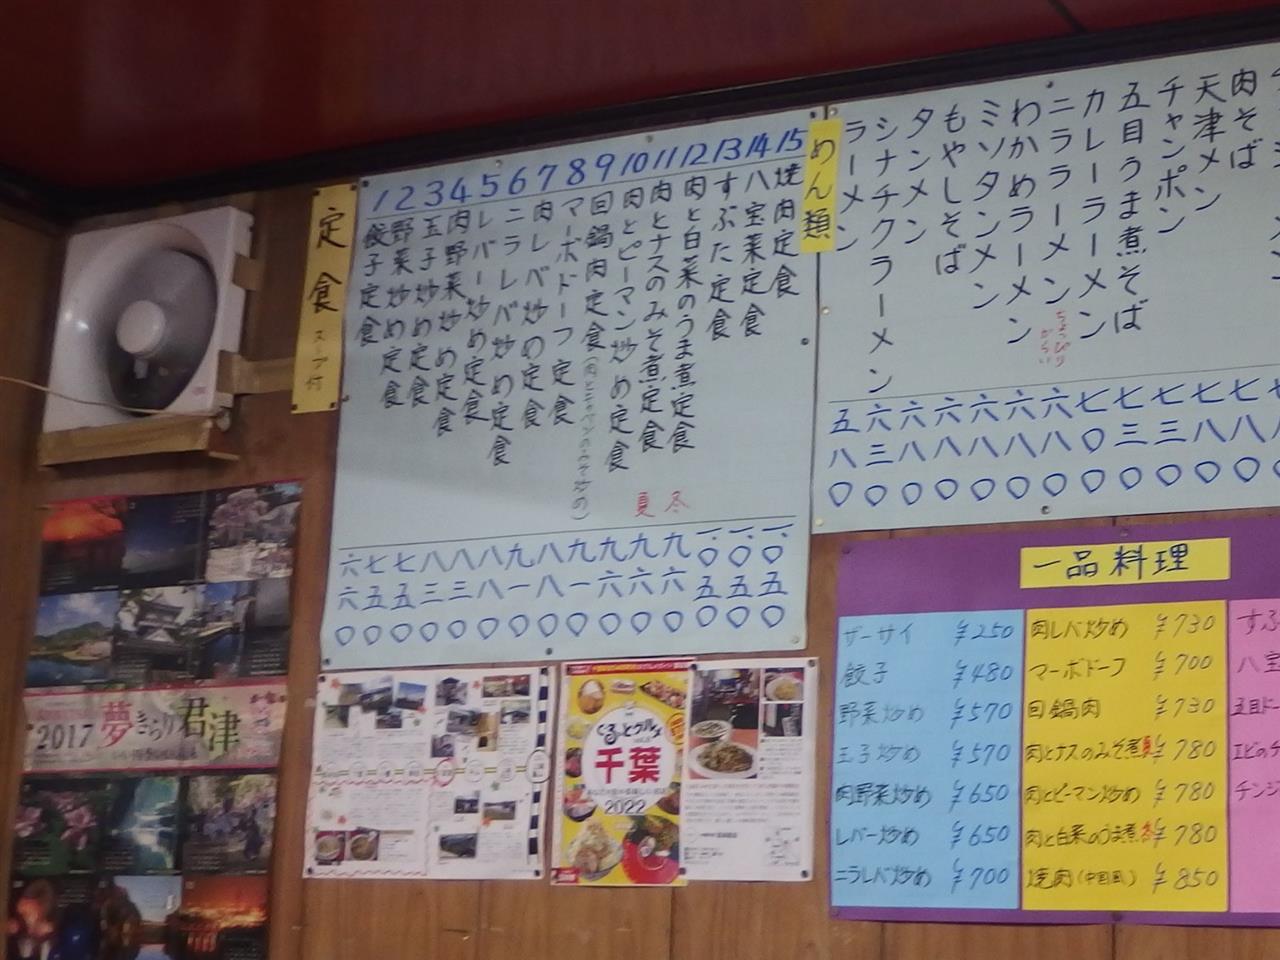 定食 スープ付
1 餃子定食 六六〇
2 野菜炒め定食 七五〇
3 玉子炒め定食 七五〇
4 肉野菜炒め定食 八三〇
5 レバー炒め定食 八三〇
6 ニラレバ炒め定食 八八〇
7 肉レバ炒め定食 九一〇
8 マーボドーフ定食 八八〇
9 回鍋肉定食(肉とキャベツのみそ炒め) 九一〇
10 肉とピーマン炒め定食 九六〇
11 肉とナスのみそ煮定食 夏 九六〇
12 肉と白菜のうま煮定食 冬 九六〇
13 すぶた定食 一〇五〇
14 八宝菜定食 一〇五〇
15 焼肉定食 一〇五〇
めん類
ラーメン 五八〇
シナチクラーメン 六三〇
タンメン 六八〇
もやしそば 六八〇
ミソタンメン 六八〇
わかめラーメン 六八〇
ニララーメン ちょっぴりからい 六八〇
カレーラーメン 七〇〇
五目うま煮そば 七三〇
チャンポン 七三〇
天津メン 七八〇
肉そば 七八〇
一品料理
ザーサイ ¥250
餃子 ¥480
野菜炒め ¥570
玉子炒め ¥570
肉野菜炒め ¥650
レバー炒め ¥650
ニラレバ炒め ¥700
肉レバ炒め ¥730
マーボドーフ ¥700
回鍋肉 ¥730
肉とナスのみそ煮夏 ¥780
肉とピーマン炒め ¥780
肉と白菜のうま煮冬 ¥780
焼肉(中国風) ¥850
すぶ
八宝
五目ドー
エビのチ
チンジ
2017 夢きらり君津
ぐるっとグルメ
千葉
2022